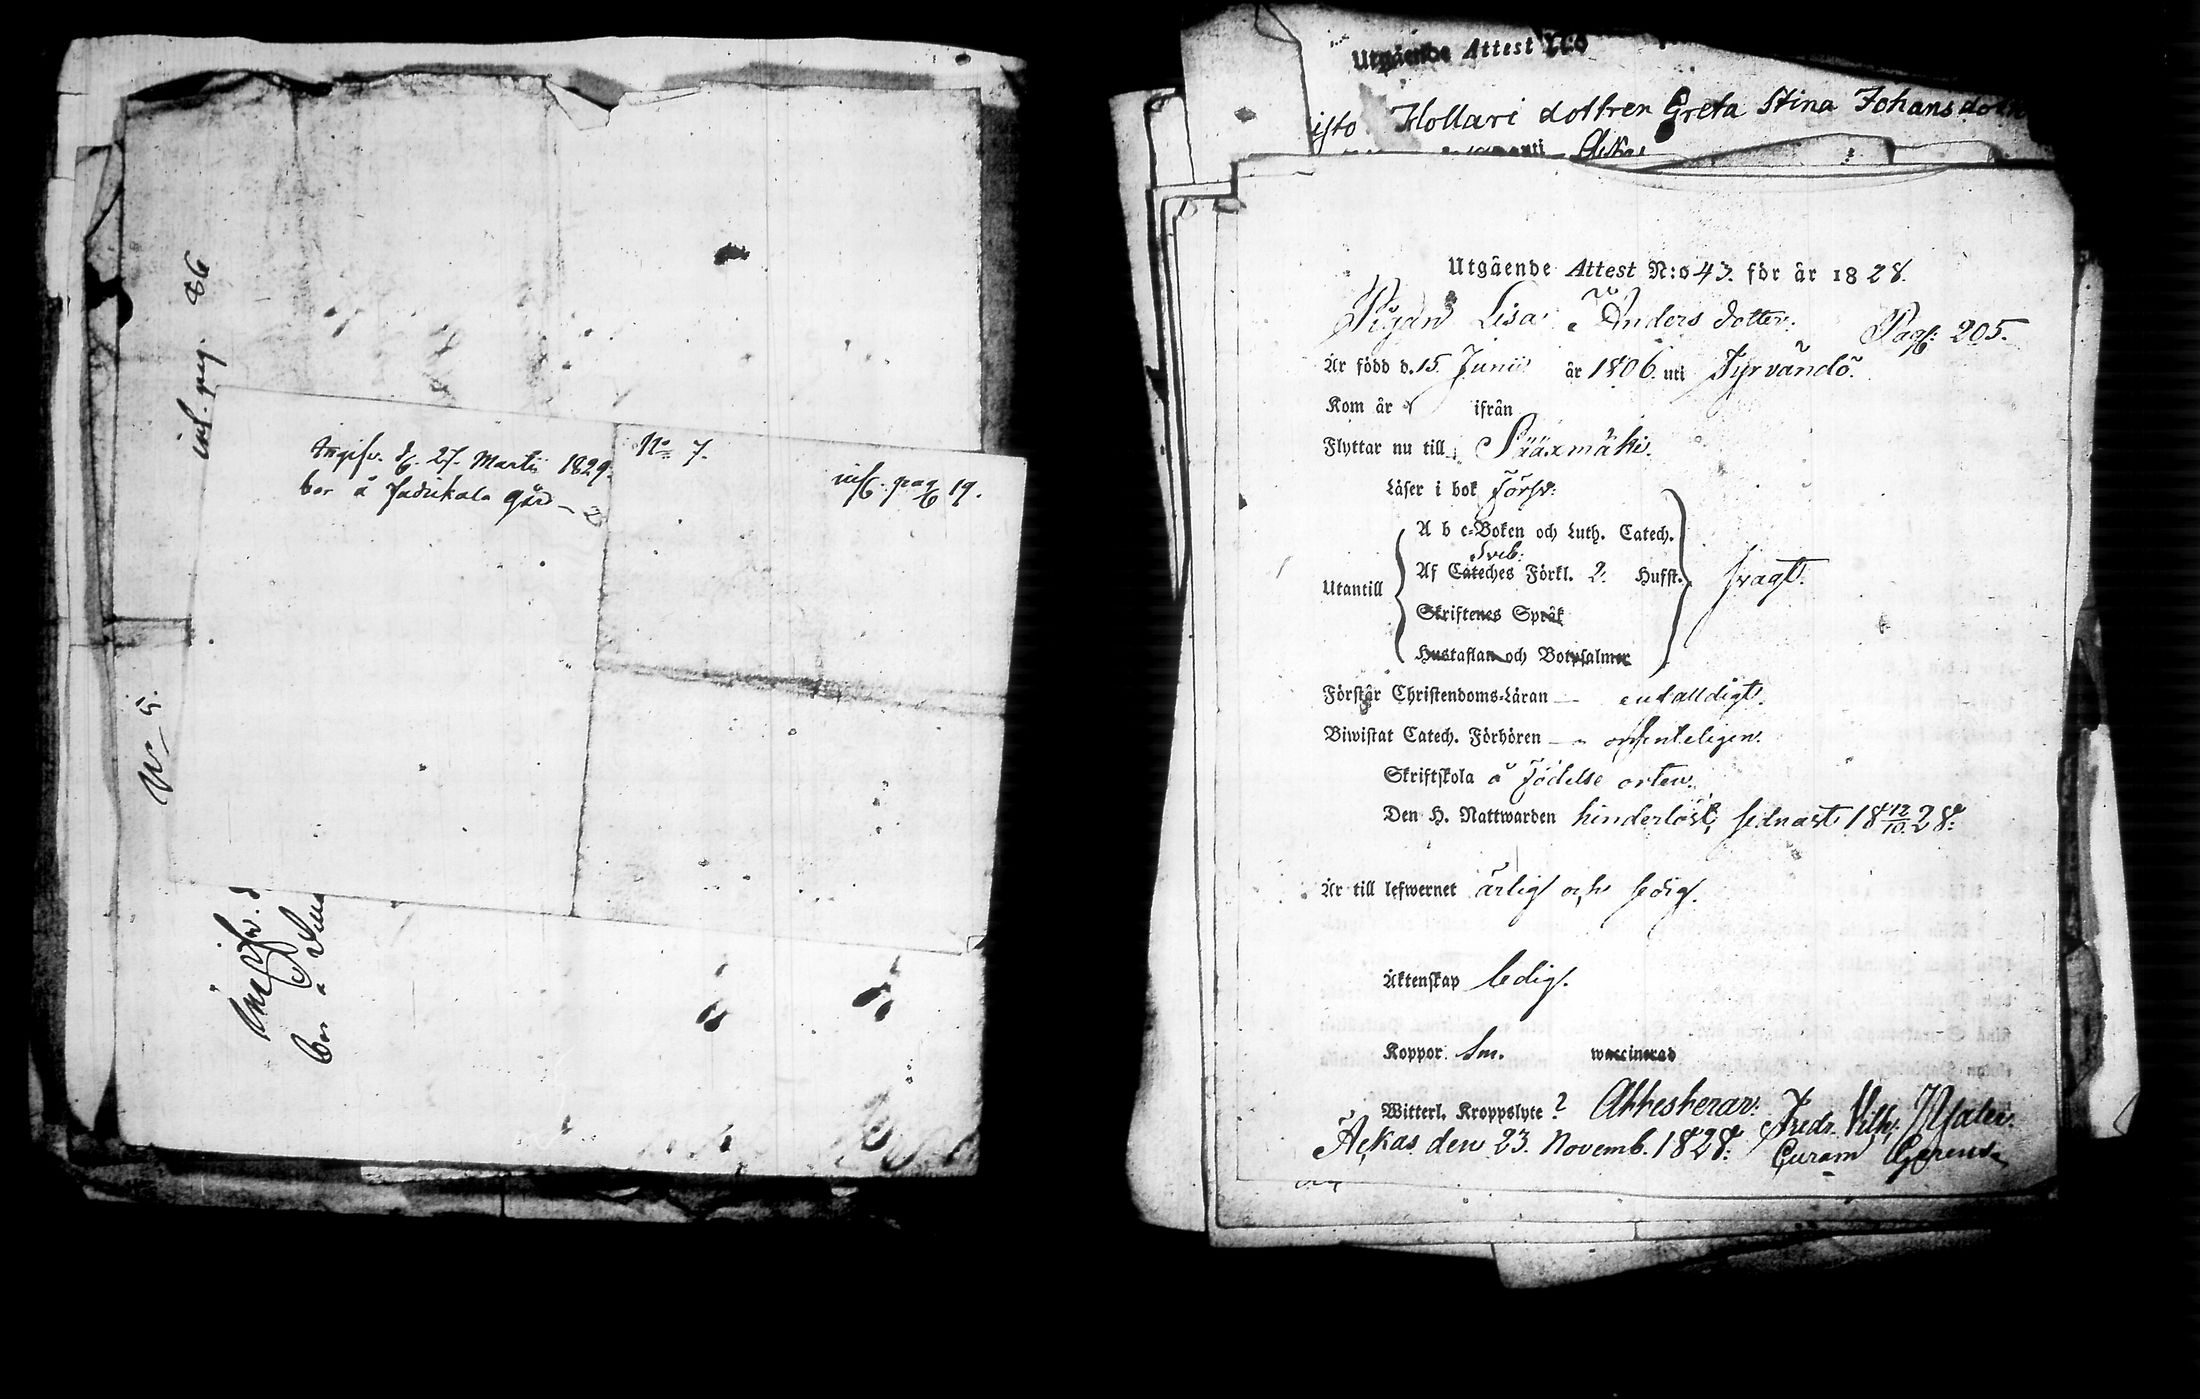 inf. pag. 86
Angifv. d. 27. Martii 1829.
bor å gård
No 7.
inf. pag 19.
No 5.
bor å
Utgående Attest N:o
Hollari dottren Greta Stina Johans dotter
Utgående Attest N:o 43. för år 1828.
Pigan Lisa Anders dotter. Pag: 205.
Är född d. 15. Junii år 1806. uti Tyrvändö.
Kom år ifrån
Flyttar nu till Sääxmäki.
Läser i bok försv:
A b c-Boken och Luth. Catech.
Sveb:
Utantill Af Cateches Förkl. 2. Hufst. svagt.
Skriftenes Språk
Hustaflan och Botpsalmer
Förstår Christendoms-Läran enfalldigt.
Biwistat Catech. Förhören ordenteligen.
Skriftskola å födelse orten.
Den H. Nattwarden hinderlöst, sednast 18 12/10 28:
Är till lefwernet ärlig och sedig.
Äktenskap ledig.
Koppor waccinerad
Witterl. Kroppslyte? Attesterar: Fredr. Vilh:
Ackas den 23. Novemb. 1828: Curam Gerens